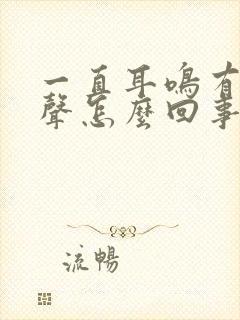 一直耳鳴有
聲怎麼回事
流暢